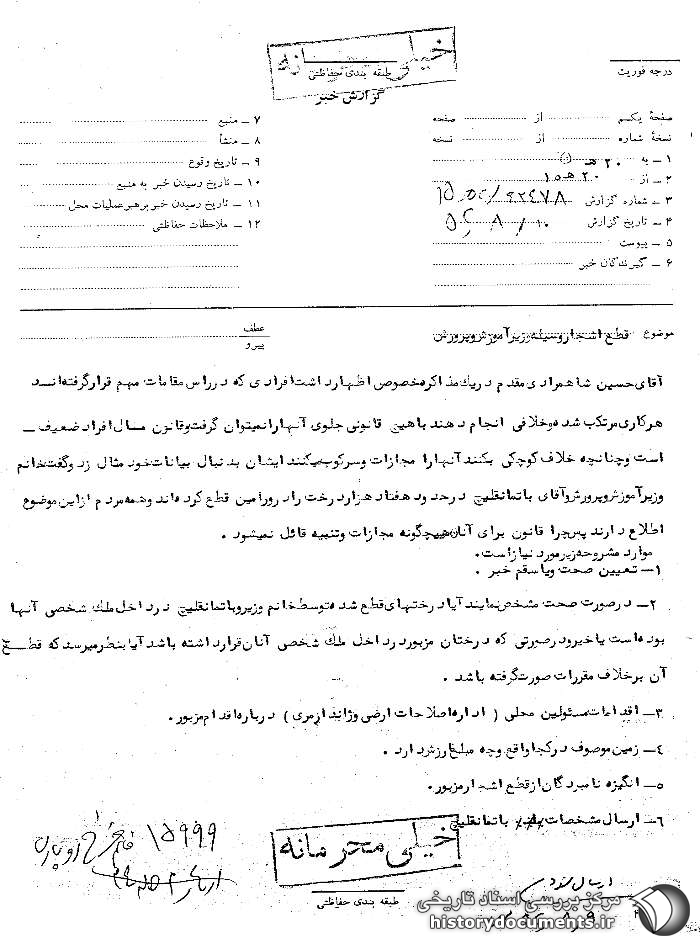 خیلی محرمانه
طبقه بندی حفاظتی
درجه فوریت
گزارش خبر
صفحهٔ یکم از صفحه
نسخهٔ شماره از نسخه
۱ – به ۲۰ هـ
۲ – از ۲۰ هـ ۱۵
۳ – شماره گزارش
۴ – تاریخ گزارش
۵ – پیوست
۶ – گیرندگان خبر
۷ – منبع
۸ – منشأ
۹ – تاریخ وقوع
۱۰ – تاریخ رسیدن خبر به منبع
۱۱ – تاریخ رسیدن خبر برهبر عملیات محل
۱۲ – ملاحظات حفاظتی
موضوع قطع اشجار وسیله وزیر آموزش و پرورش
عطف
پیرو
آقای حسین شاهمرادی مقدم در یك مذاکره خصوصی اظهار داشت افرادی که در راس مقامات مهم قرار گرفته اند
هر کاری مرتکب شده و خلافی انجام دهند با هیچ قانونی جلوی آنها را نمیتوان گرفت و قانون مال افراد ضعیف –
است و چنانچه خلاف کوچکی بکنند آنها را مجازات و سرکوب میکنند ایشان بدنبال بیانات خود مثال زد و گفت خانم
وزیر آموزش و پرورش و آقای باتمانقلیچ در حدود هفتاد هزار درخت را در ورامین قطع کرده اند و همه مردم از این موضوع
اطلاع دارند پس چرا قانون برای آنان هیچگونه مجازات و تنبیه قائل نمیشود .
موارد مشروحه زیر مورد نیاز است.
۱– تعیین صحت و یا سقم خبر .
۲– در صورت صحت مشخص نمایند آیا درختهای قطع شده توسط خانم وزیر و باتمانقلیچ در داخل ملك شخصی آنها
بوده است یا خیر و در صورتی که درختان مزبور در داخل ملك شخصی آنان قرار داشته باشد آیا بنظر میرسد که قطع
آن برخلاف مقررات صورت گرفته باشد .
۳– اقدامات مسئولین محلی ( اداره اصلاحات ارضی و ژاندارمری ) درباره اقدام مزبور.
۴– زمین موصوف در کجا واقع و چه مبلغ ارزش دارد .
۵– انگیزه نامبردگان از قطع اشجار مزبور.
۶– ارسال مشخصات باتمانقلیچ
خیلی محرمانه
طبقه بندی حفاظتی
۱۵۹۹۹
ارسال شود
مرکز بررسی اسناد تاریخی
historydocuments.ir